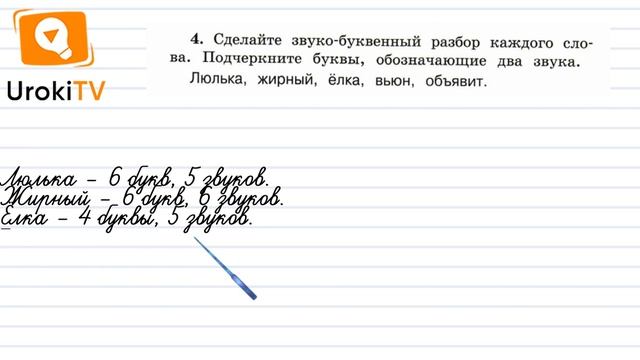 UrokiTV
4. Сделайте звуко-буквенный разбор каждого сло-
ва. Подчеркните буквы, обозначающие два звука.
Люлька, жирный, ёлка, вьюн, объявит.
Люлька – 6 букв, 5 звуков.
Жирный – 6 букв, 6 звуков.
Ёлка – 4 буквы, 5 звуков.